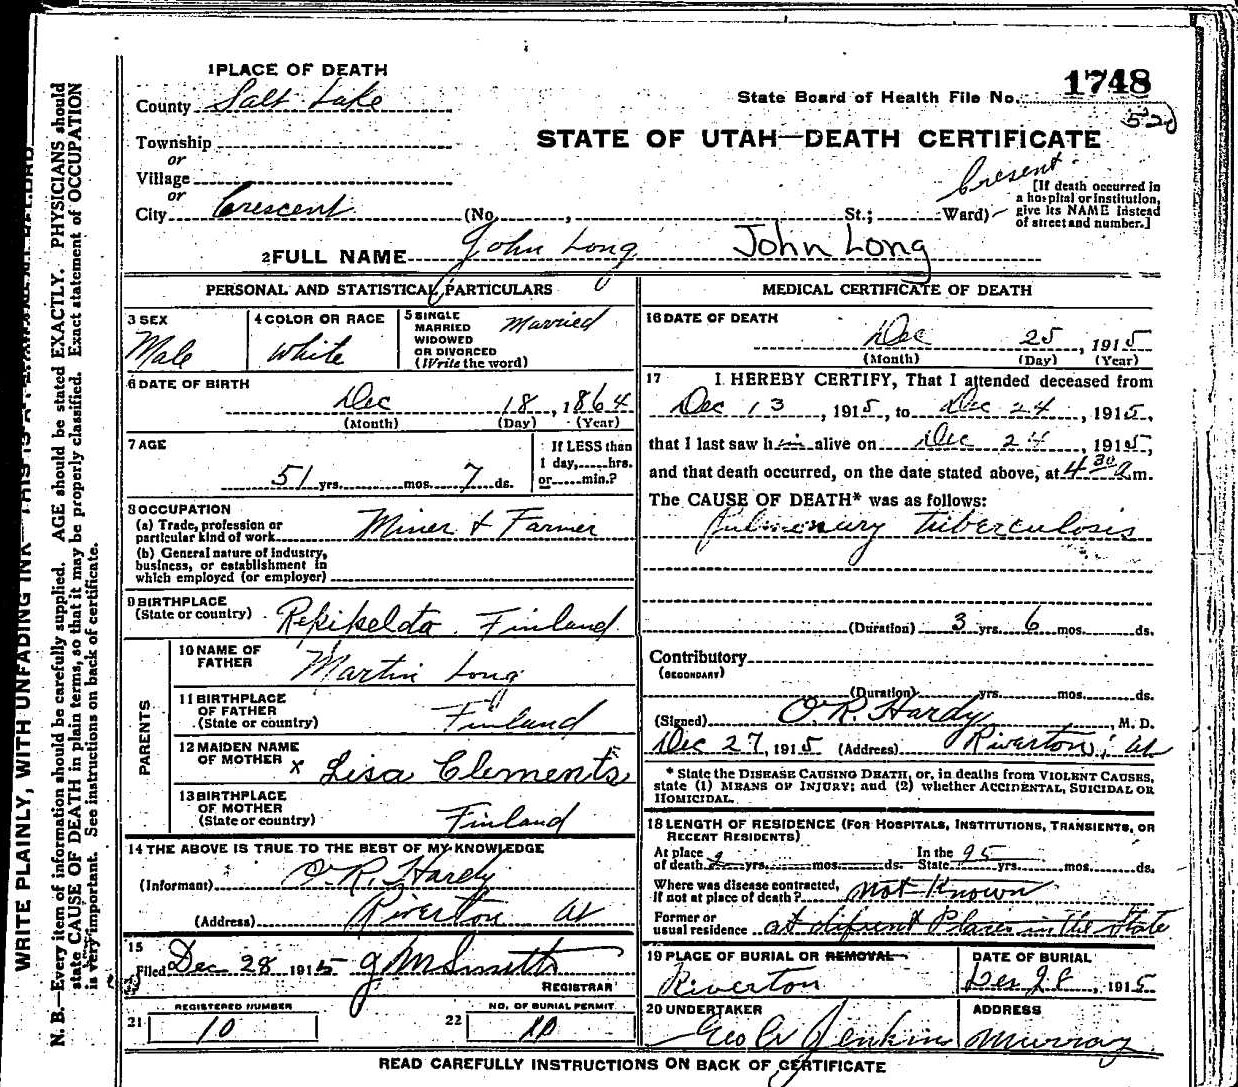 1 PLACE OF DEATH
County Salt Lake
State Board of Health File No. 1748
520
STATE OF UTAH—DEATH CERTIFICATE
Township
or
Village
or
City Crescent (No. , St.; Ward)
Cresent
[If death occurred in
a hospital or institution,
give its NAME instead
of street and number.]
2 FULL NAME John Long John Long
PERSONAL AND STATISTICAL PARTICULARS
3 SEX
Male
4 COLOR OR RACE
White
5 SINGLE
MARRIED
WIDOWED
OR DIVORCED
(Write the word)
Married
6 DATE OF BIRTH
Dec 18, 1864
(Month) (Day) (Year)
7 AGE
51 yrs. mos. 7 ds.
If LESS than
1 day, hrs.
or min.?
8 OCCUPATION
(a) Trade, profession or
particular kind of work Miner & Farmer
(b) General nature of industry,
business, or establishment in
which employed (or employer)
9 BIRTHPLACE
(State or country) Finland
PARENTS
10 NAME OF
FATHER Martin Long
11 BIRTHPLACE
OF FATHER
(State or country) Finland
12 MAIDEN NAME
OF MOTHER x Lisa Clements
13 BIRTHPLACE
OF MOTHER
(State or country) Finland
14 THE ABOVE IS TRUE TO THE BEST OF MY KNOWLEDGE
(Informant) O.R. Hardy
(Address) Riverton Ut
15
Filed Dec 28 1915 J M Smith
REGISTRAR
REGISTERED NUMBER
21 10
NO. OF BURIAL PERMIT
22 10
MEDICAL CERTIFICATE OF DEATH
16 DATE OF DEATH
Dec 25, 1915
(Month) (Day) (Year)
17 I HEREBY CERTIFY, That I attended deceased from
Dec 13, 1915, to Dec 24, 1915,
that I last saw him alive on Dec 24, 1915,
and that death occurred, on the date stated above, at 4 30 a m.
The CAUSE OF DEATH* was as follows:
Pulmonury tuberculosis
(Duration) 3 yrs. 6 mos. ds.
Contributory
(SECONDARY)
(Duration) yrs. mos. ds.
(Signed) O.R. Hardy, M. D.
Dec 27, 1915 (Address) Riverton, Ut
* State the DISEASE CAUSING DEATH, or, in deaths from VIOLENT CAUSES,
state (1) MEANS OF INJURY; and (2) whether ACCIDENTAL, SUICIDAL OR
HOMICIDAL.
18 LENGTH OF RESIDENCE (FOR HOSPITALS, INSTITUTIONS, TRANSIENTS, OR
RECENT RESIDENTS)
At place of death 2 yrs. mos. ds. In the State 25 yrs. mos. ds.
Where was disease contracted,
if not at place of death? Not Known
Former or
usual residence at difrent Places in the State
19 PLACE OF BURIAL OR REMOVAL
Riverton
DATE OF BURIAL
Dec 28, 1915
20 UNDERTAKER
Geo Jenkin
ADDRESS
Murray
READ CAREFULLY INSTRUCTIONS ON BACK OF CERTIFICATE
WRITE PLAINLY, WITH UNFADING INK—THIS IS A PERMANENT RECORD
N. B.—Every item of information should be carefully supplied. AGE should be stated EXACTLY. PHYSICIANS should
state CAUSE OF DEATH in plain terms, so that it may be properly classified. Exact statement of OCCUPATION
is very important. See instructions on back of certificate.